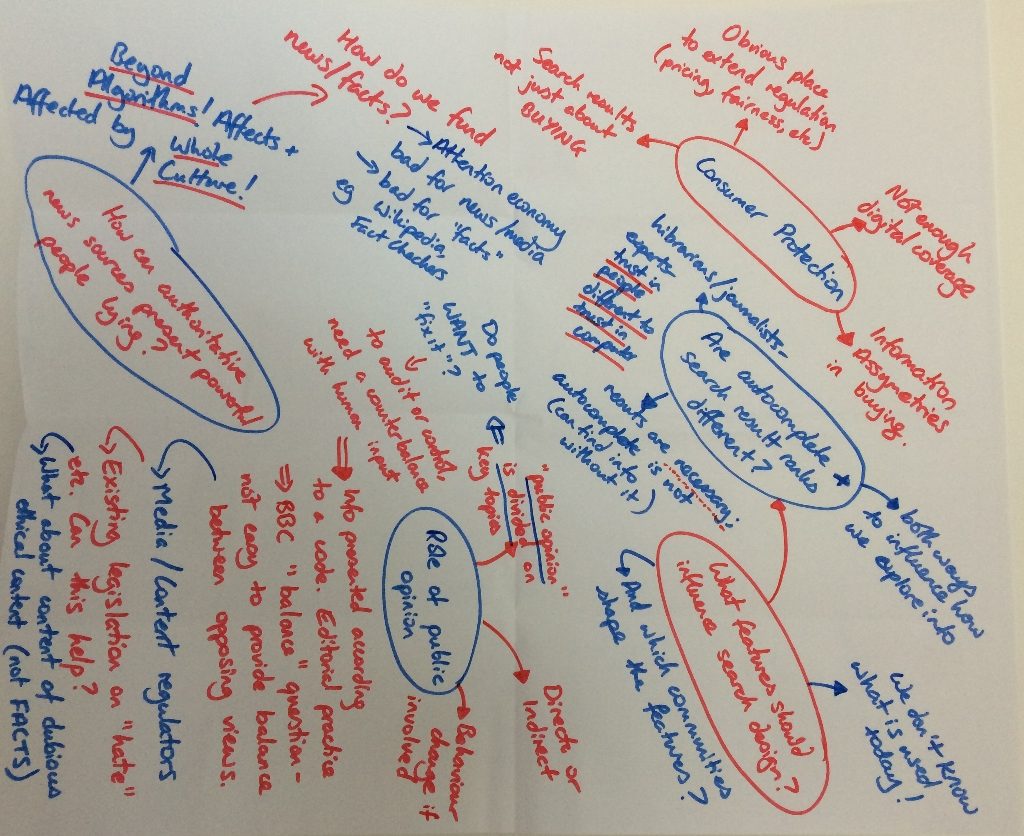 Beyond
Algorithms! Affects +
Affected by Whole
Culture!
How do we fund
news/facts?
→ Attention economy
bad for news/media
→ bad for "facts"
eg Wikipedia,
Fact Checkers
How can authoritative
news sources prevent powerful
people lying?
Search results
not just about
BUYING
Obvious place
to extend regulation
(pricing, fairness, etc)
Consumer Protection
Not enough
digital coverage
Information
Assymetries
in buying.
librarians/journalists -
experts -
trust in
people
different to
trust in
computer
Are autocomplete +
search result ranks
different?
results are necessary.
autocomplete is not
(can find info
without it)
both ways how
to influence
we explore info
What features should
influence search design?
We don't know
what is used
today!
→ And which communities
shape the features?
Role of public
opinion
"public opinion"
is divided on
key topics
Do people
WANT to
"fix it"?
↓
to audit or control,
need a counterbalance
with human input
⇒ Info presented according
to a code. Editorial practice
⇒ BBC "balance" question -
not easy to provide balance
between opposing views.
Direct or
Indirect
→ Behaviour
change if
involved
→ Media/Content regulators
→ Existing legislation on "hate"
etc. Can this help?
→ What about content of dubious
ethical content (not FACTS)